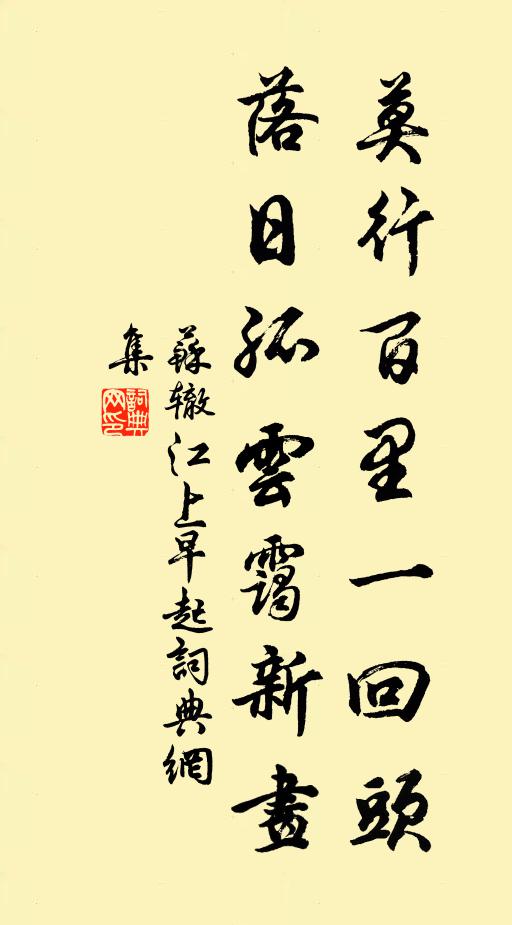 莫行百里一回頭
落日孤雲靄新畫
蘇轍江上早起詞典網
集
詞典
网印